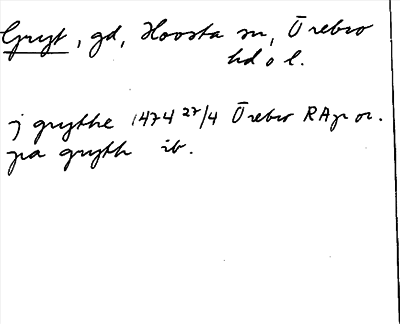 Gryt, gd, Hovsta sn, Örebro
hd o l.
j grythe 1474 27/4 Örebro RAp or.
pa gryth ib.